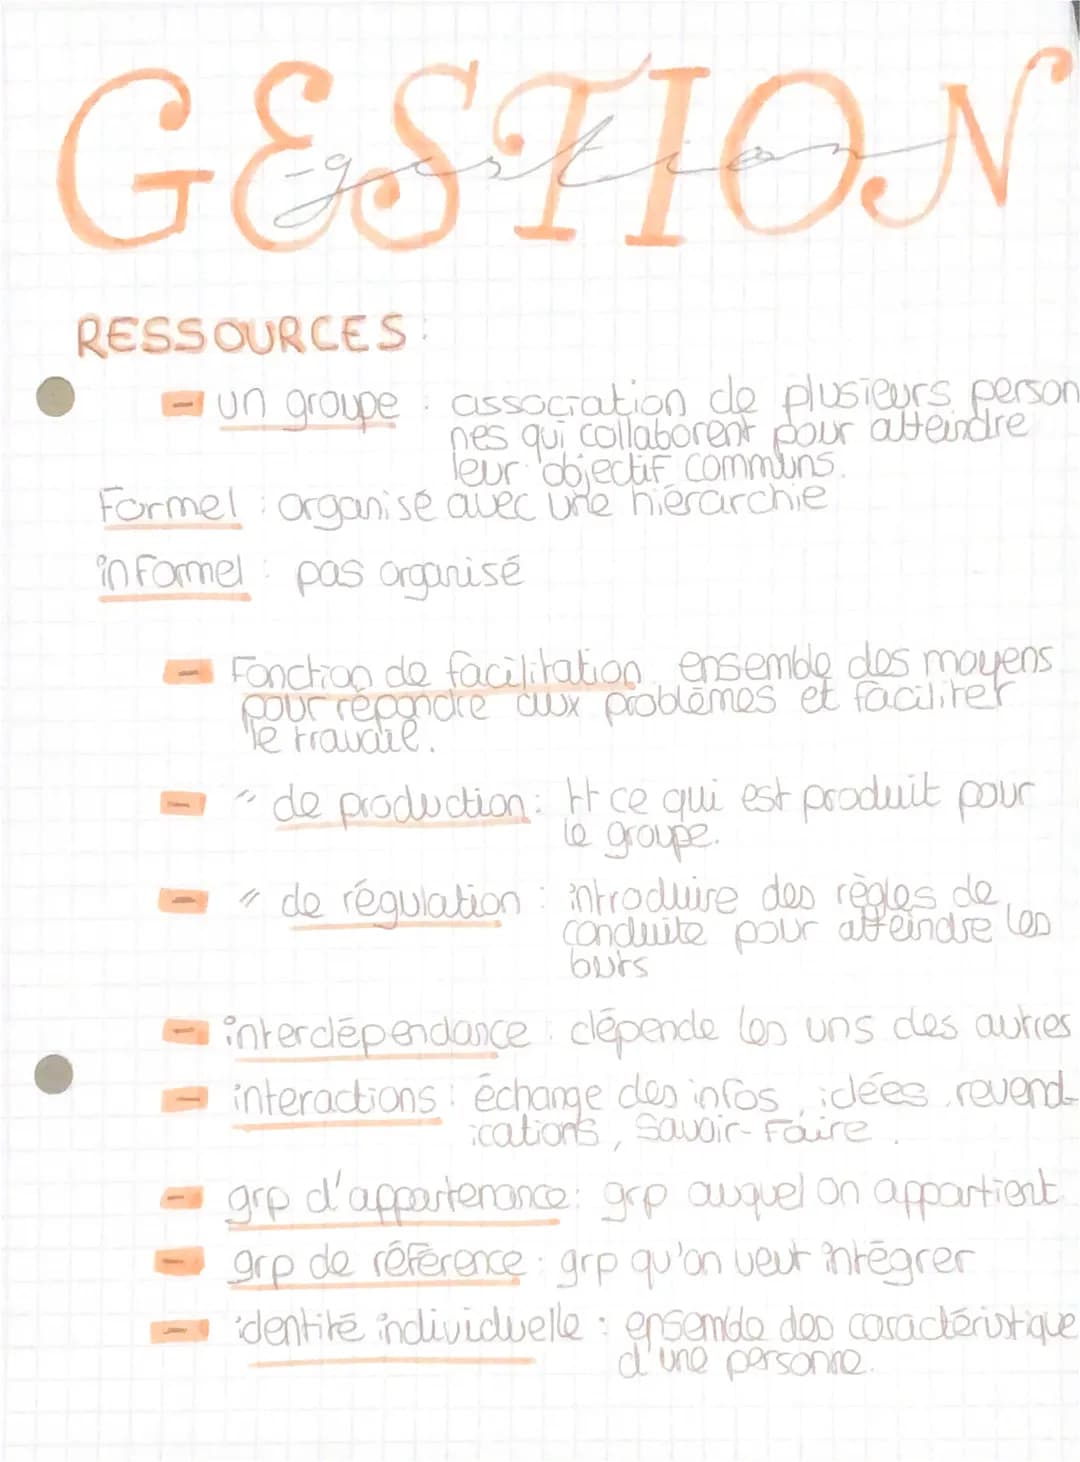 GESTION
-gestion
RESSOURCES:
- un groupe : association de plusieurs person
nes qui collaborent pour atteindre
leur objectif communs.
Formel : organisé avec une hiérarchie
informel : pas organisé
- Fonction de facilitation ensemble des moyens
pour répondre aux problèmes et faciliter
le travail.
- " de production : tt ce qui est produit pour
le groupe.
- " de régulation : introduire des règles de
conduite pour atteindre les
buts
- interdépendance : dépende les uns des autres
- interactions : échange des infos, idées, revend-
ications, savoir-faire.
- grp d'appartenance : grp auquel on appartient.
- grp de référence : grp qu'on veut intégrer
- identité individuelle : ensemble des caractéristique
d'une personne.